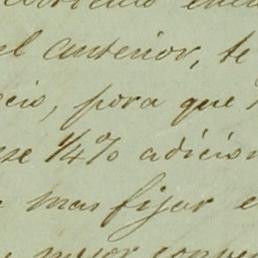 el anterior, te
cio, para que
se ¼% adicion
mas fijar e
mejor conven